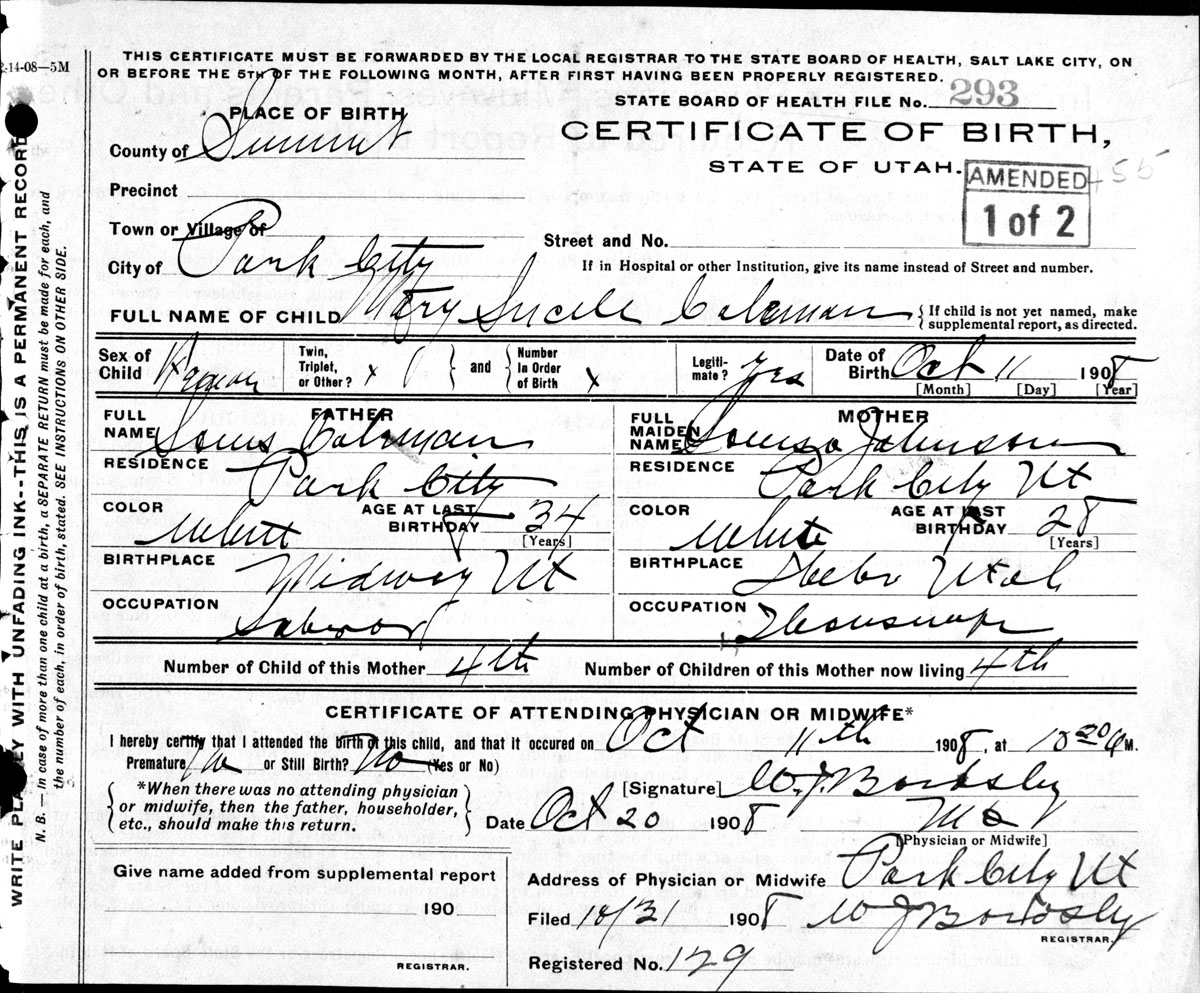 2-14-08—5M
THIS CERTIFICATE MUST BE FORWARDED BY THE LOCAL REGISTRAR TO THE STATE BOARD OF HEALTH, SALT LAKE CITY, ON
OR BEFORE THE 5TH OF THE FOLLOWING MONTH, AFTER FIRST HAVING BEEN PROPERLY REGISTERED.
STATE BOARD OF HEALTH FILE No. 293
PLACE OF BIRTH
CERTIFICATE OF BIRTH,
County of Summit
STATE OF UTAH.
AMENDED 455
1 of 2
Precinct
Town or Village of
Street and No.
City of Park City
If in Hospital or other Institution, give its name instead of Street and number.
FULL NAME OF CHILD Mary Lucile Coleman { If child is not yet named, make
supplemental report, as directed.
Sex of Child
Twin, Triplet, or Other? x } and { Number In Order of Birth x
Legiti-mate? Yes
Date of Birth Oct 11 1908
[Month] [Day] [Year]
FATHER
FULL NAME Louis Coleman
RESIDENCE Park City
COLOR White AGE AT LAST BIRTHDAY 34
[Years]
BIRTHPLACE Midway Ut
OCCUPATION Labror
MOTHER
FULL MAIDEN NAME Louisa Johnson
RESIDENCE Park City Ut
COLOR White AGE AT LAST BIRTHDAY 28
[Years]
BIRTHPLACE Heber Utah
OCCUPATION Housewife
Number of Child of this Mother 4th Number of Children of this Mother now living 4th
CERTIFICATE OF ATTENDING PHYSICIAN OR MIDWIFE*
I hereby certify that I attended the birth of this child, and that it occured on Oct 11th 1908, at 10 20 a M.
Premature No or Still Birth? No (Yes or No)
{ *When there was no attending physician
or midwife, then the father, householder,
etc., should make this return. }
[Signature] W. J. Bardsley
Date Oct 20 1908 M D
[Physician or Midwife]
Give name added from supplemental report
190
REGISTRAR.
Address of Physician or Midwife Park City Ut
Filed 10/31 1908 W J Bardsley
REGISTRAR.
Registered No. 129
WRITE PLAINLEY WITH UNFADING INK--THIS IS A PERMANENT RECORD
N. B.—In case of more than one child at a birth, a SEPARATE RETURN must be made for each, and
the number of each, in order of birth, stated. SEE INSTRUCTIONS ON OTHER SIDE.